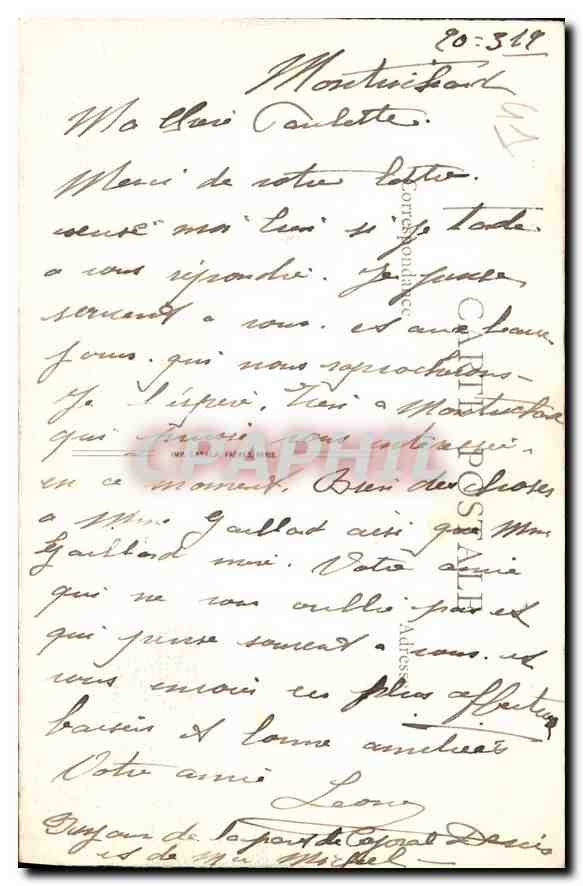 20=3 19
Montrichard
Ma Chère Paulette.
Merci de votre lettre.
moi si je tarde
a vous répondre. Je pense
souvent a vous. et aux beaux
jours. qui nous rapprocherons
Je l'espère. Rien a Montrichard
qui puisse vous intéresser.
en ce moment. Bien des choses
a Mme Gaillard ainsi que Mme
Gaillard mère. Votre amie
qui ne vous oublie pas et
qui pense souvent a vous. et
vous envoie ces plus affectueux
baisers et bonne amitiés
Votre amie
Léone
Bonjour de la part de Caporal Denis
et de Miguel
Correspondance
CARTE POSTALE
Adresse
IMP. CATALA FRÈRES, PARIS.
CPAPHIL